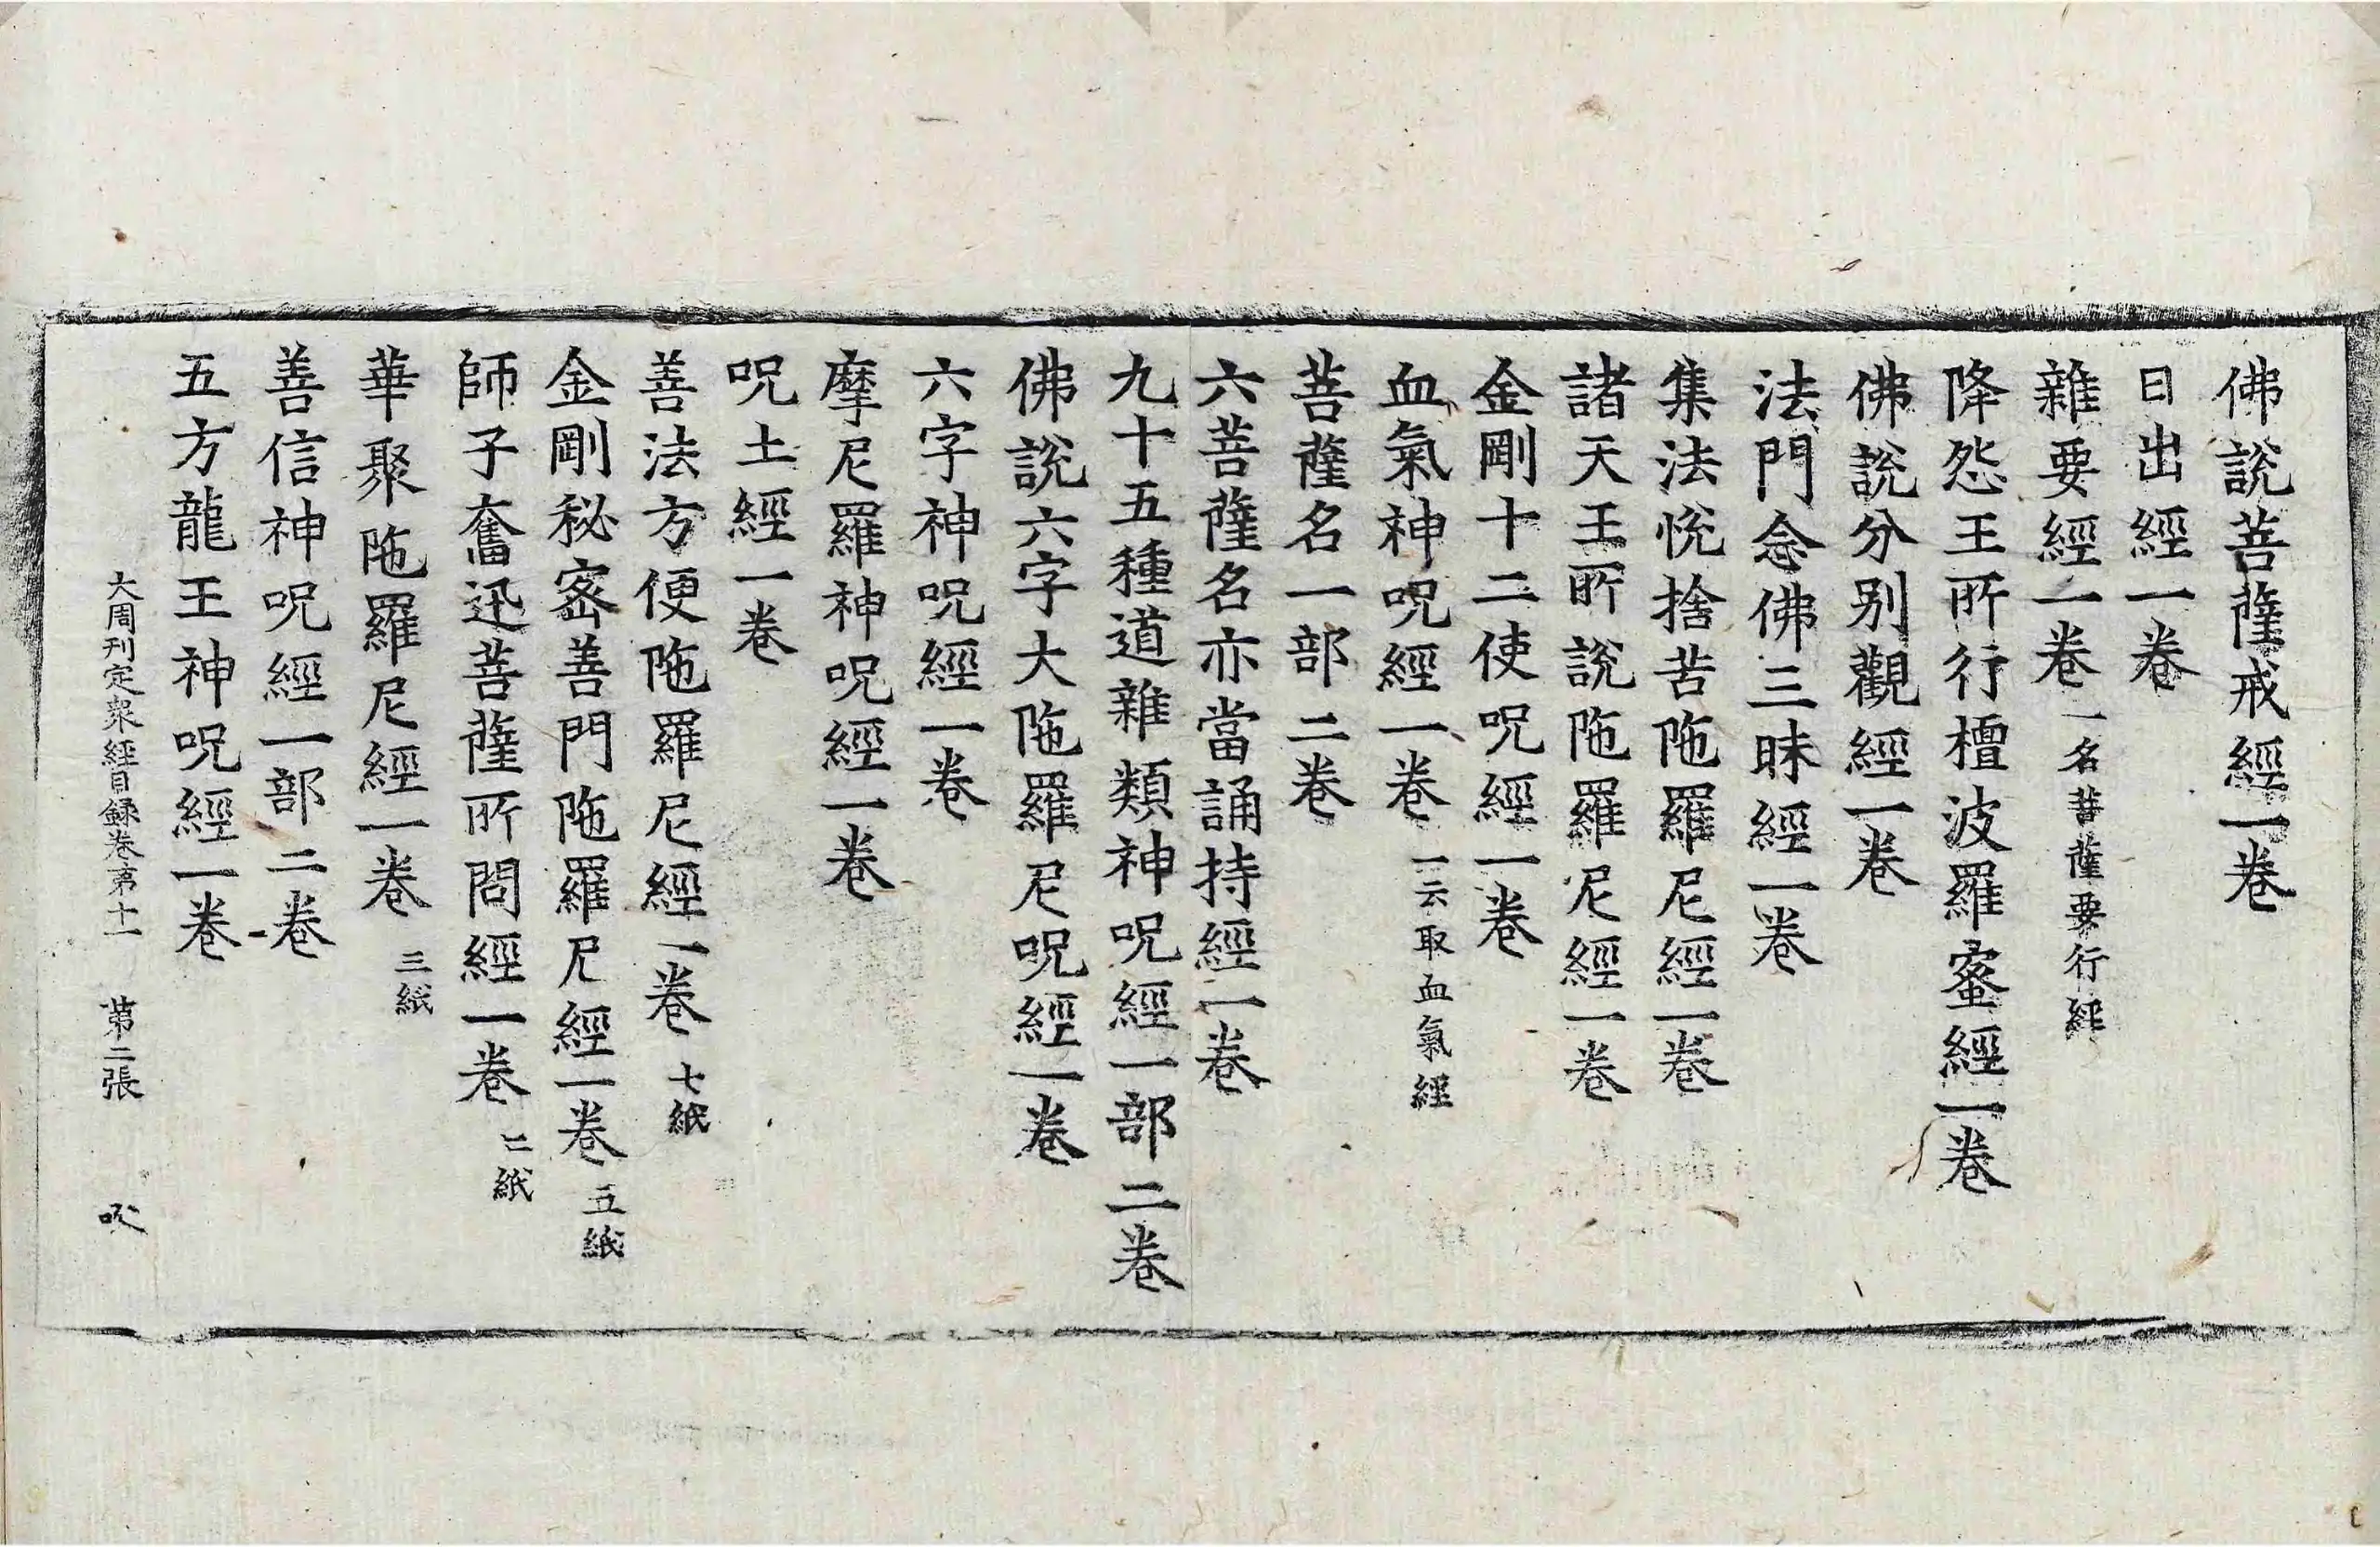 佛說菩薩戒經一卷
日出經一卷
雜要經一卷 一名菩薩要行經
降怨王所行檀波羅蜜經一卷
佛說分别觀經一卷
法門念佛三昧經一卷
集法悅捨苦陁羅尼經一卷
諸天王所說陁羅尼經一卷
金剛十二使呪經一卷
血氣神呪經一卷 一云取血氣經
菩薩名一部二卷
六菩薩名亦當誦持經一卷
九十五種道雜類神呪經一部二卷
佛說六字大陁羅尼呪經一卷
六字神呪經一卷
摩尼羅神呪經一卷
呪土經一卷
善法方便陁羅尼經一卷 七紙
金剛秘密善門陁羅尼經一卷 五紙
師子奮迅菩薩所問經一卷 二紙
華聚陁羅尼經一卷 三紙
善信神呪經一部二卷
五方龍王神呪經一卷
大周刊定衆經目錄卷第十一 第二張